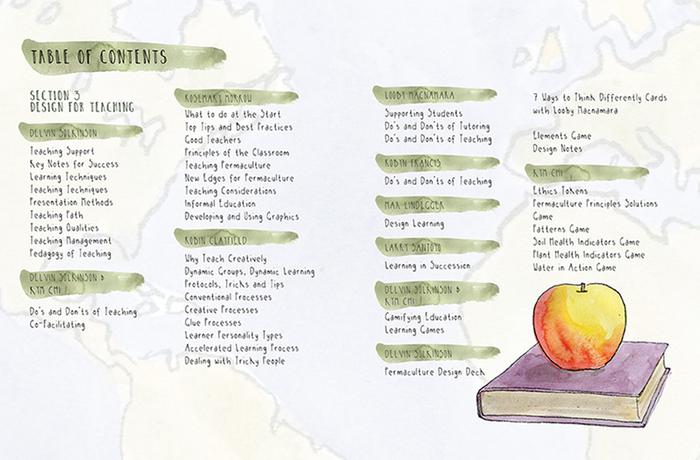 TABLE OF CONTENTS
SECTION 3
DESIGN FOR TEACHING
DELVIN SOLKINSON
Teaching Support
Key Notes for Success
Learning Techniques
Teaching Techniques
Presentation Methods
Teaching Path
Teaching Qualities
Teaching Management
Pedagogy of Teaching
DELVIN SOLKINSON &
KYM CHI
Do's and Don'ts of Teaching
Co-facilitating
ROSEMARY MORROW
What to do at the Start
Top Tips and Best Practices
Good Teachers
Principles of the Classroom
Teaching Permaculture
New Edges for Permaculture
Teaching Considerations
Informal Education
Developing and Using Graphics
ROBIN CLAYFIELD
Why Teach Creatively
Dynamic Groups, Dynamic Learning
Protocols, Tricks and Tips
Conventional Processes
Creative Processes
Glue Processes
Learner Personality Types
Accelerated Learning Process
Dealing with Tricky People
LOOBY MACNAMARA
Supporting Students
Do's and Don'ts of Tutoring
Do's and Don'ts of Teaching
ROBYN FRANCIS
Do's and Don'ts of Teaching
MAX LINDEGGER
Design Learning
LARRY SANTOYO
Learning in Succession
DELVIN SOLKINSON &
KYM CHI
Gamifying Education
Learning Games
DELVIN SOLKINSON
Permaculture Design Deck
7 Ways to Think Differently Cards
with Looby Macnamara
Elements Game
Design Notes
KYM CHI
Ethics Tokens
Permaculture Principles Solutions
Game
Patterns Game
Soil Health Indicators Game
Plant Health Indicators Game
Water in Action Game